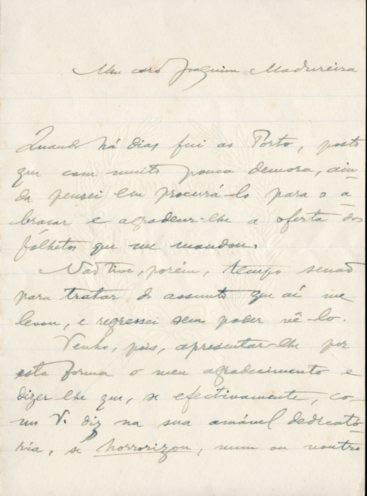 Meu caro Joaquim Madureira
Quando há dias fui ao Porto, posto
que com muito pouca demora, ain
da pensei em procurá-lo para o a
braçar e agradecer-lhe a oferta dos
folhetos que me mandou.
Não tive, porém, tempo senão
para tratar do assunto que aí me
levou, e regressei sem poder vê-lo.
Venho, pois, apresentar-lhe por
esta forma o meu agradecimento e
dizer-lhe que, se efectivamente, co-
mo V. diz na sua amável dedicató
ria, se horrorizou, num ou noutro